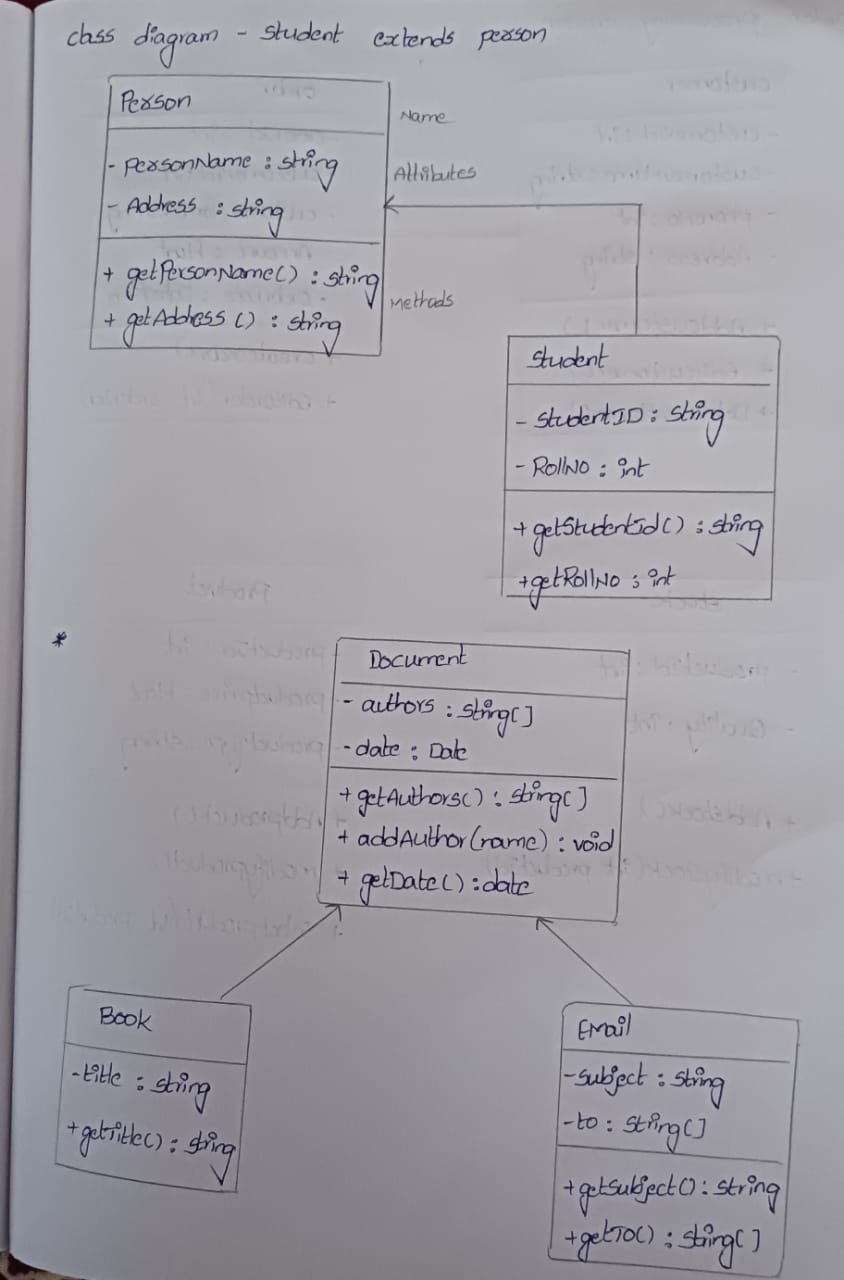 class diagram - student extends person
Person
Name
- PersonName : string
Attributes
- Address : string
+ getPersonName() : string
Methods
+ getAddress () : string
Student
- StudentID : string
- RollNo : int
+ getStudentId() : string
+ getRollNo : int
*
Document
- authors : string[]
- date : Date
+ getAuthors() : string[]
+ addAuthor(name) : void
+ getDate() : date
Book
- title : string
+ getTitle() : string
Email
- subject : string
- to : string[]
+ getsubject() : string
+ getTo() : string[]